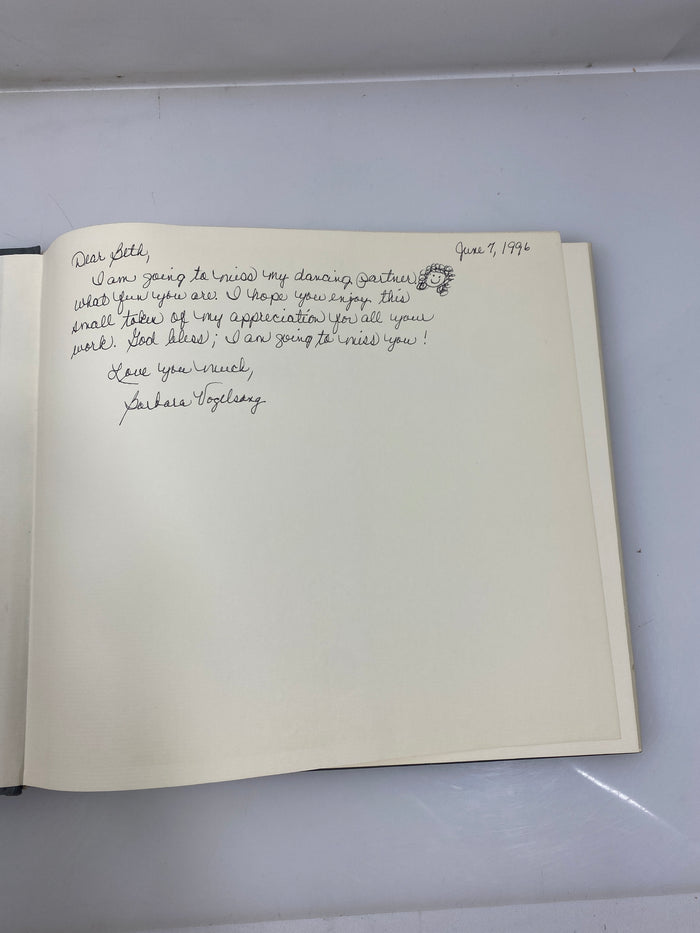 June 7, 1996
Dear Beth,
I am going to miss my dancing partner
what fun you are. I hope you enjoy this
small token of my appreciation for all your
work. God bless; I am going to miss you!
Love you much,
Barbara Vogelsang